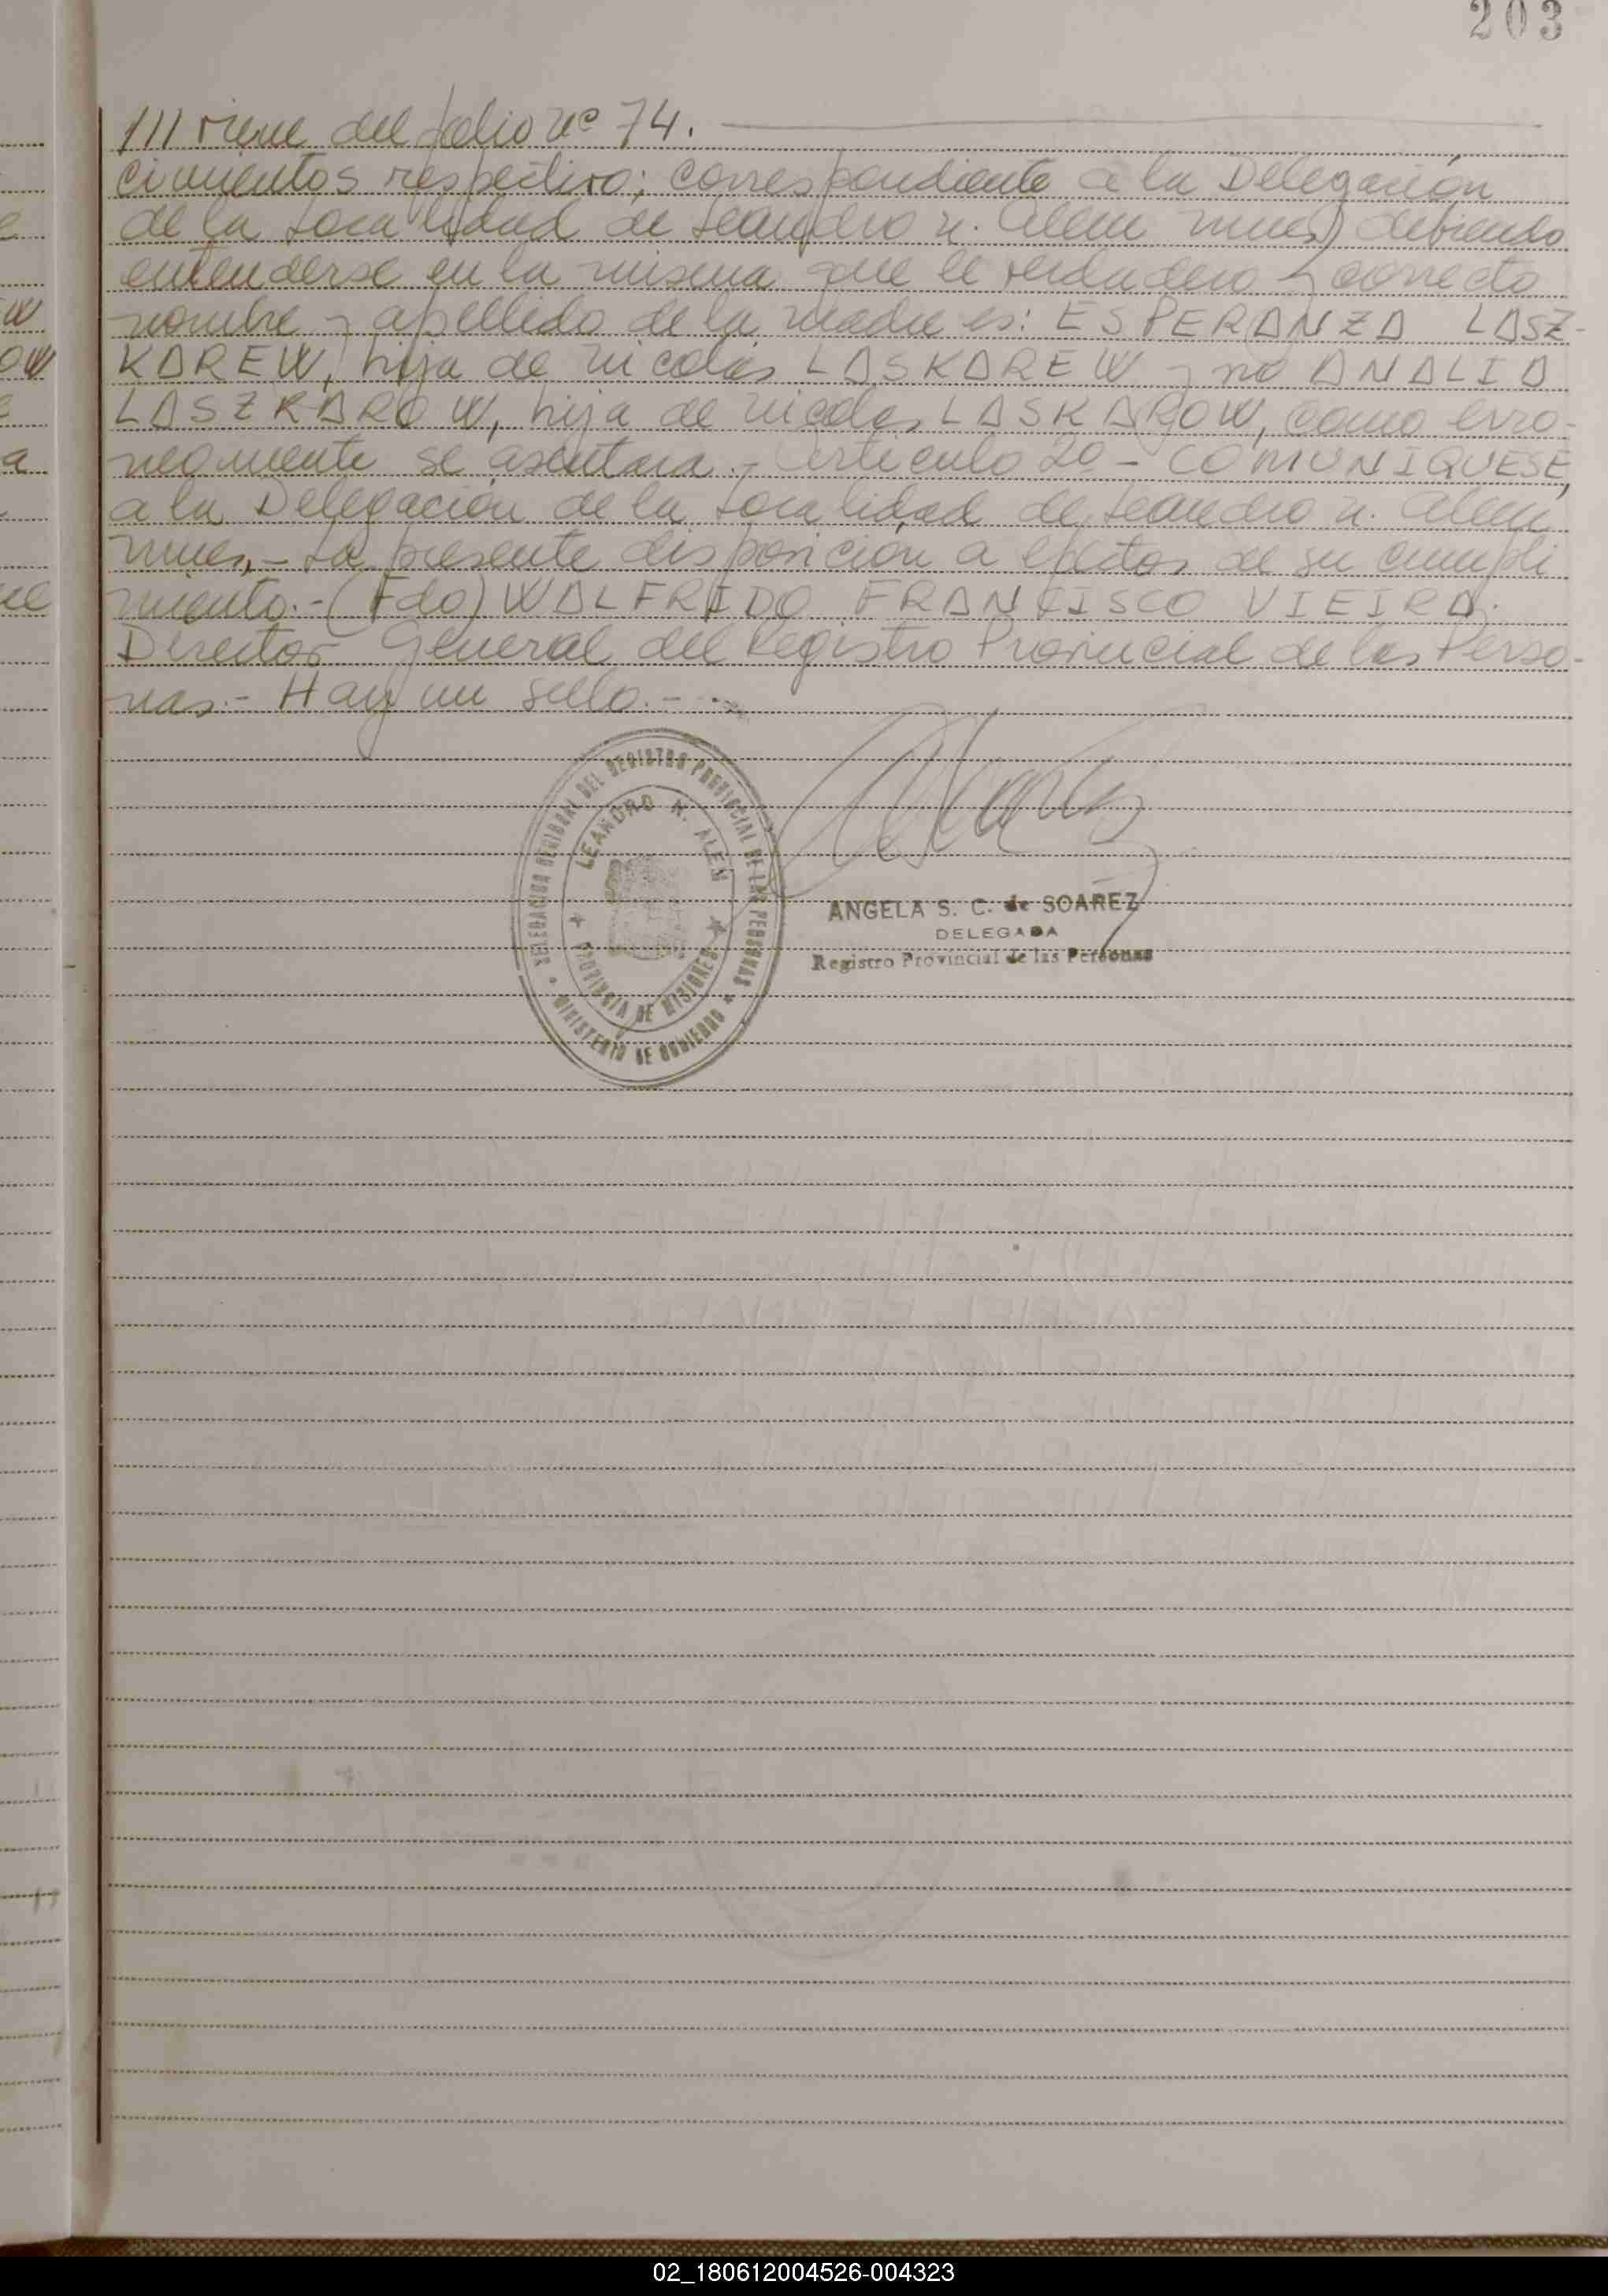 203
/// viene del folio nº 74.
cimientos respectivo; correspondiente a la Delegación
de la Localidad de Leandro N. Alem Mnes) debiendo
entenderse en la misma que el verdadero y correcto
nombre y apellido de la madre es: ESPERANZA LASZ-
KAREW, hija de Nicolás LASKAREW y no ANALIA
LASZKAROW, hija de Nicolas LASKAROW, como erro-
neamente se asentara.- Artículo 2º - COMUNIQUESE,
a la Delegación de la Localidad de Leandro N. Alem
Mnes,- La presente disposición a efectos de su cumpli
miento.- (Fdo) WALFRIDO FRANCISCO VIEIRA.
Director General del Registro Provincial de las Perso-
nas.- Hay un sello.-
DEL REGISTRO PROVINCIAL DE LAS PERSONAS
LEANDRO N. ALEM
PROVINCIA DE MISIONES
MINISTERIO DE GOBIERNO
ANGELA S. C. de SOAREZ
DELEGADA
Registro Provincial de las Personas
02_180612004526-004323